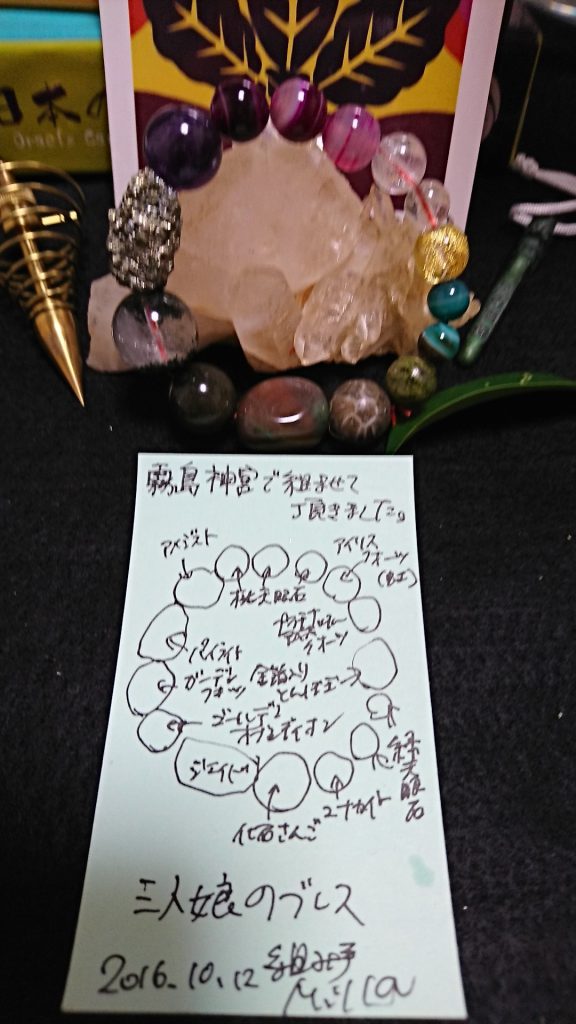 日本の
Oracle Ca
霧島神宮で組ませて
頂きました。
アメジスト
アイリス
クォーツ
(虹)
桃天眼石
クォーツ
パイライト
ガーデン
クォーツ
金箔入り
とんぼ玉
ゴールデン
オブシディオン
ジェイド
緑天眼石
ユナカイト
化石さんご
三人娘のブレス
2016.10.12